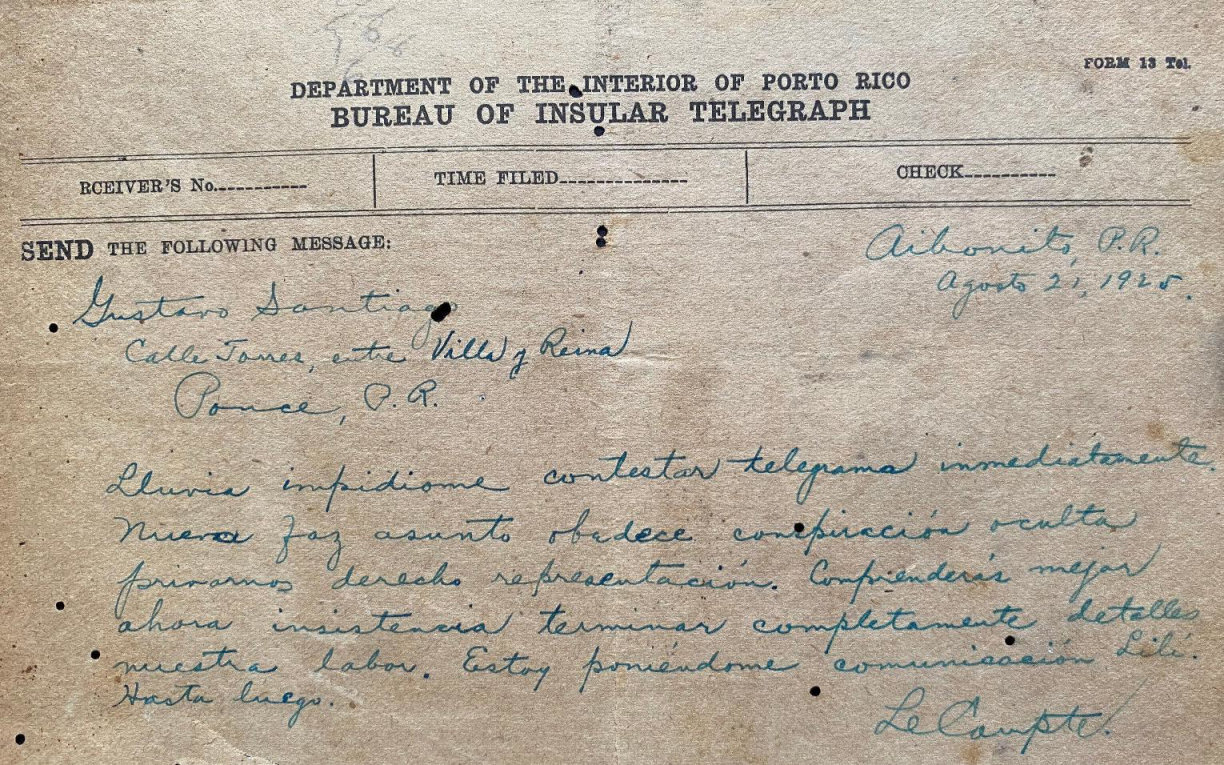 FORM 13 Tel.
DEPARTMENT OF THE INTERIOR OF PORTO RICO
BUREAU OF INSULAR TELEGRAPH
RCEIVER'S No.
TIME FILED
CHECK
SEND THE FOLLOWING MESSAGE:
Aibonito, P.R.
Agosto 21, 1925.
Gustavo Santiago
Calle Torres, entre Villa y Reina
Ponce, P.R.
Lluvia impidiome contestar telegrama inmediatamente.
Nueva faz asunto obedece conspiración oculta
privarnos derecho representación. Comprenderás mejor
ahora insistencia terminar completamente detalles
nuestra labor. Estoy poniéndome comunicación Lili.
Hasta luego.
Le Compte.